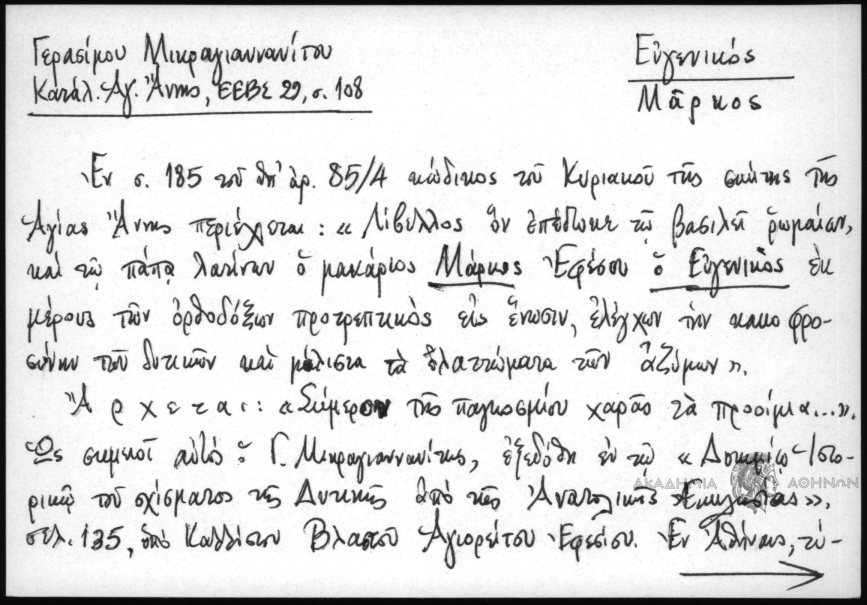 Γερασίμου Μικραγιαννανίτου
Κατάλ. Ἁγ. Ἄννης, ΕΕΒΣ 29, σ. 108
Εὐγενικός
Μᾶρκος
Ἐν σ. 185 τοῦ ὑπ' ἀρ. 85/4 κώδικος τοῦ Κυριακοῦ τῆς σκήτης τῆς
Ἁγίας Ἄννης περιέχεται: «Λίβελλος ὃν ἐπέδωκε τῷ βασιλεῖ ῥωμαίων,
καὶ τῷ πάπᾳ λατίνων ὁ μακάριος Μάρκος Ἐφέσου ὁ Εὐγενικὸς ἐκ
μέρους τῶν ὀρθοδόξων προτρεπτικὸς εἰς ἕνωσιν, ἐλέγχων τὴν κακοφρο-
σύνην τῶν δυτικῶν καὶ μάλιστα τὰ ἐλαττώματα τῶν ἀζύμων».
Ἄρχεται: «Σήμερον τῆς παγκοσμίου χαρᾶς τὰ προοίμια...».
Ὡς σημειοῖ αὐτὸς ὁ Γ. Μικραγιαννανίτης, ἐξεδόθη ἐν τῷ «Δοκιμίῳ Ἱστο-
ρικῷ τοῦ σχίσματος τῆς Δυτικῆς ἀπὸ τῆς Ἀνατολικῆς Ἐκκλησίας»,
σελ. 135, ὑπὸ Καλλίστου Βλαστοῦ Ἁγιορείτου Ἐφεσίου. Ἐν Ἀθήναις, τύ-
ΑΚΑΔΗΜΙΑ ΑΘΗΝΩΝ